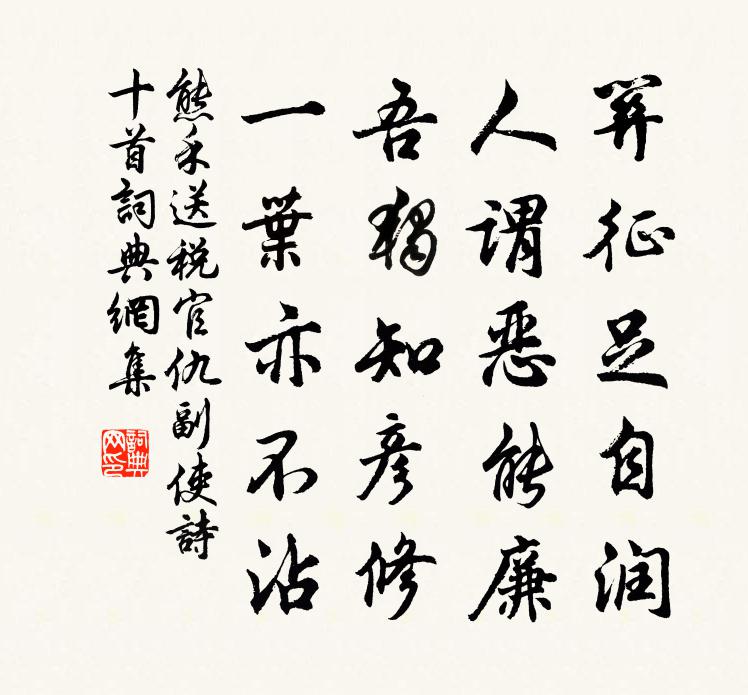 筭征足自润
人謂惡能廉
吾獨知彦修
一葉亦不沾
熊禾送税官仇副使詩
十首詞典網集
詞典网印